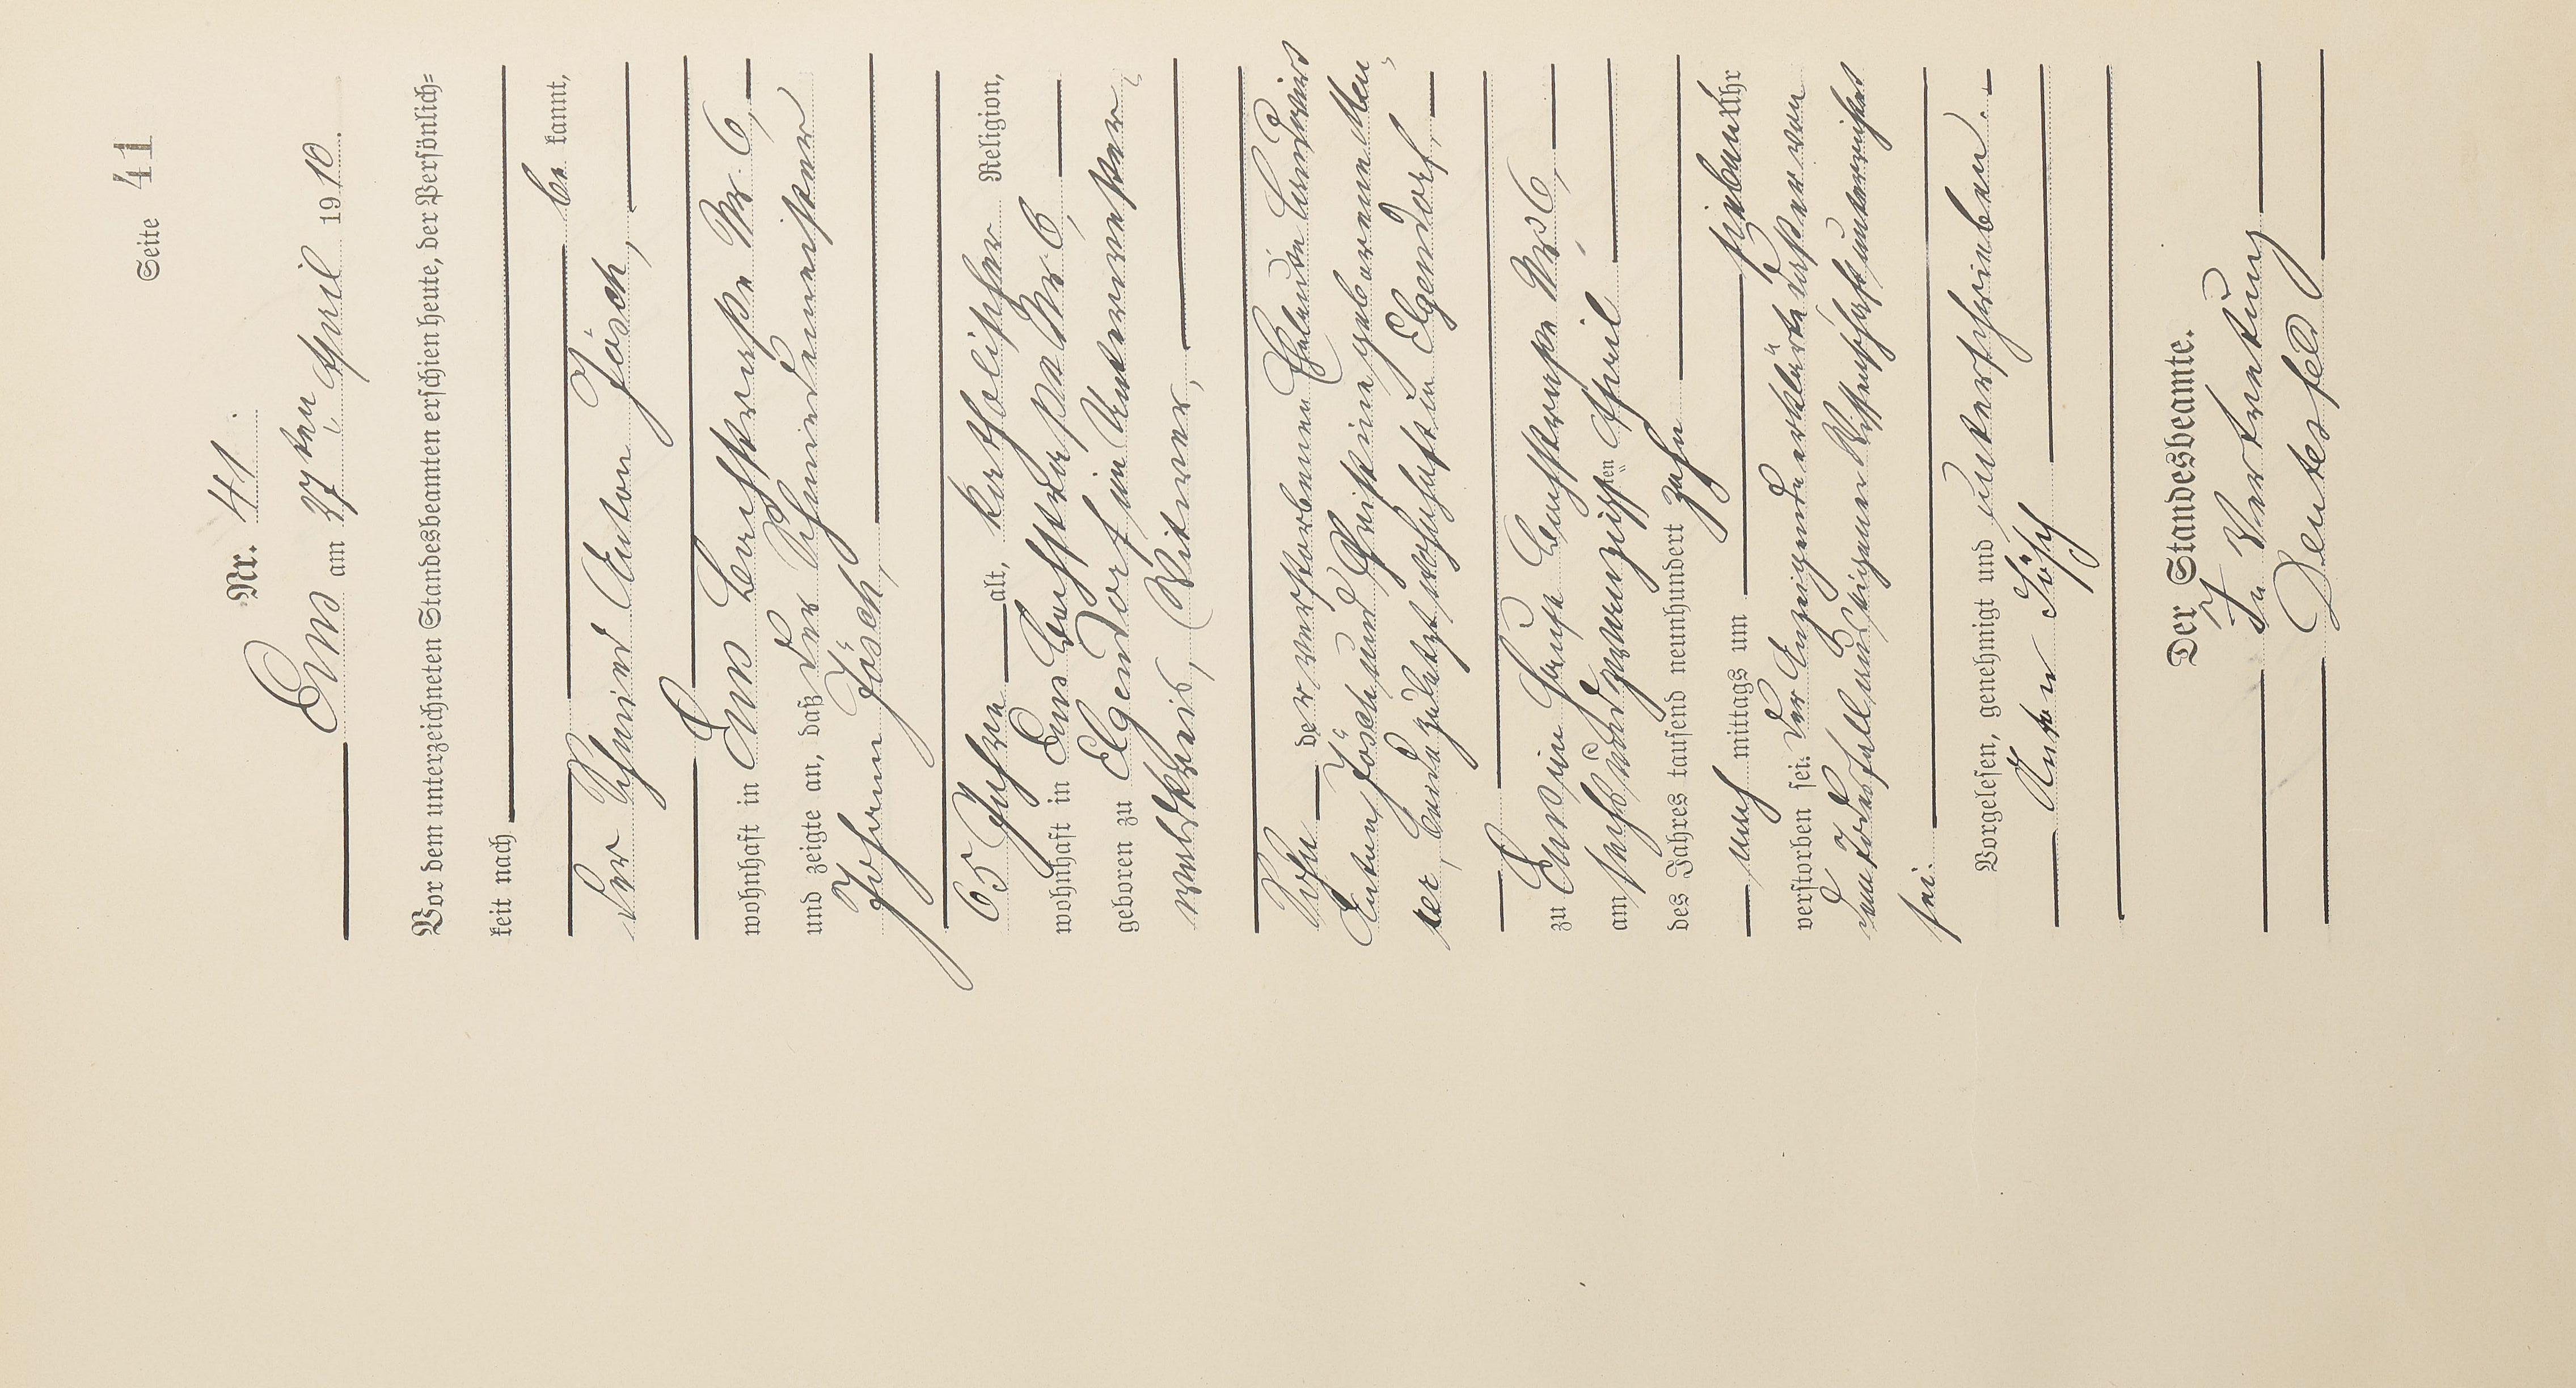 Seite 41
Nr. 41.
Ems am 27ten April 1910.
Vor dem unterzeichneten Standesbeamten erschien heute, der Persönlich=
keit nach be kannt,
der Schmied Anton Jösch,
wohnhaft in Ems Bachstraße Nr. 6,
und zeigte an, daß der Schmiedemeister
Johann Jösch,
65 Jahre alt, katholischer Religion,
wohnhaft in Ems Bachstraße Nr 6,
geboren zu Elgendorf im Unterwester-
waldkreis, Witwer,
Sohn der verstorbenen Eheleute Landwirt
Anton Jösch und Christine geborenen
beide zuletzt wohnhaft in Elgendorf,
zu Ems im Hause Bachstraße Nr 6,
am sechsundzwanzigsten April
des Jahres tausend neunhundert zehn
nach mittags um sieben Uhr
verstorben sei. Der Anzeigende erklärte daß er von
dem Todesfall aus eigener Wissenschaft unterrichtet
sei.
Vorgelesen, genehmigt und unterschrieben.
Anton Jösch
Der Standesbeamte.
In Vertretung